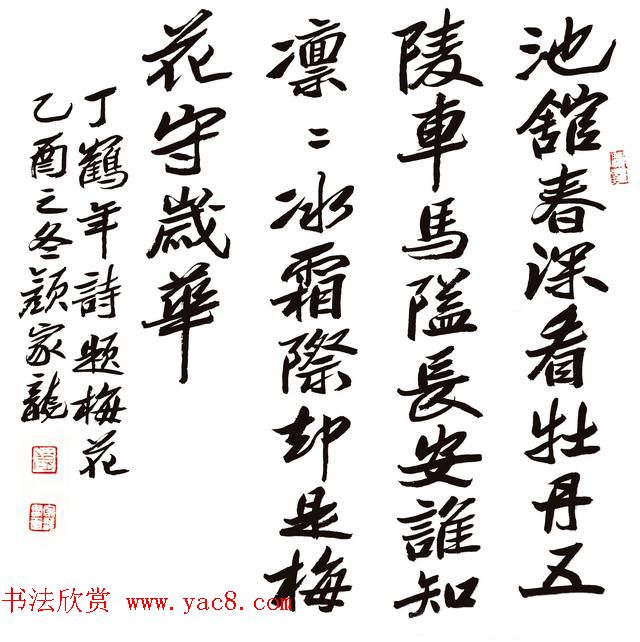 池館春深看牡丹五
陵車馬隘長安誰知
凛〻冰霜際却是梅
花守歲華
丁鶴年詩題梅花
乙酉之冬顔家龍
书法欣赏 www.yac8.com